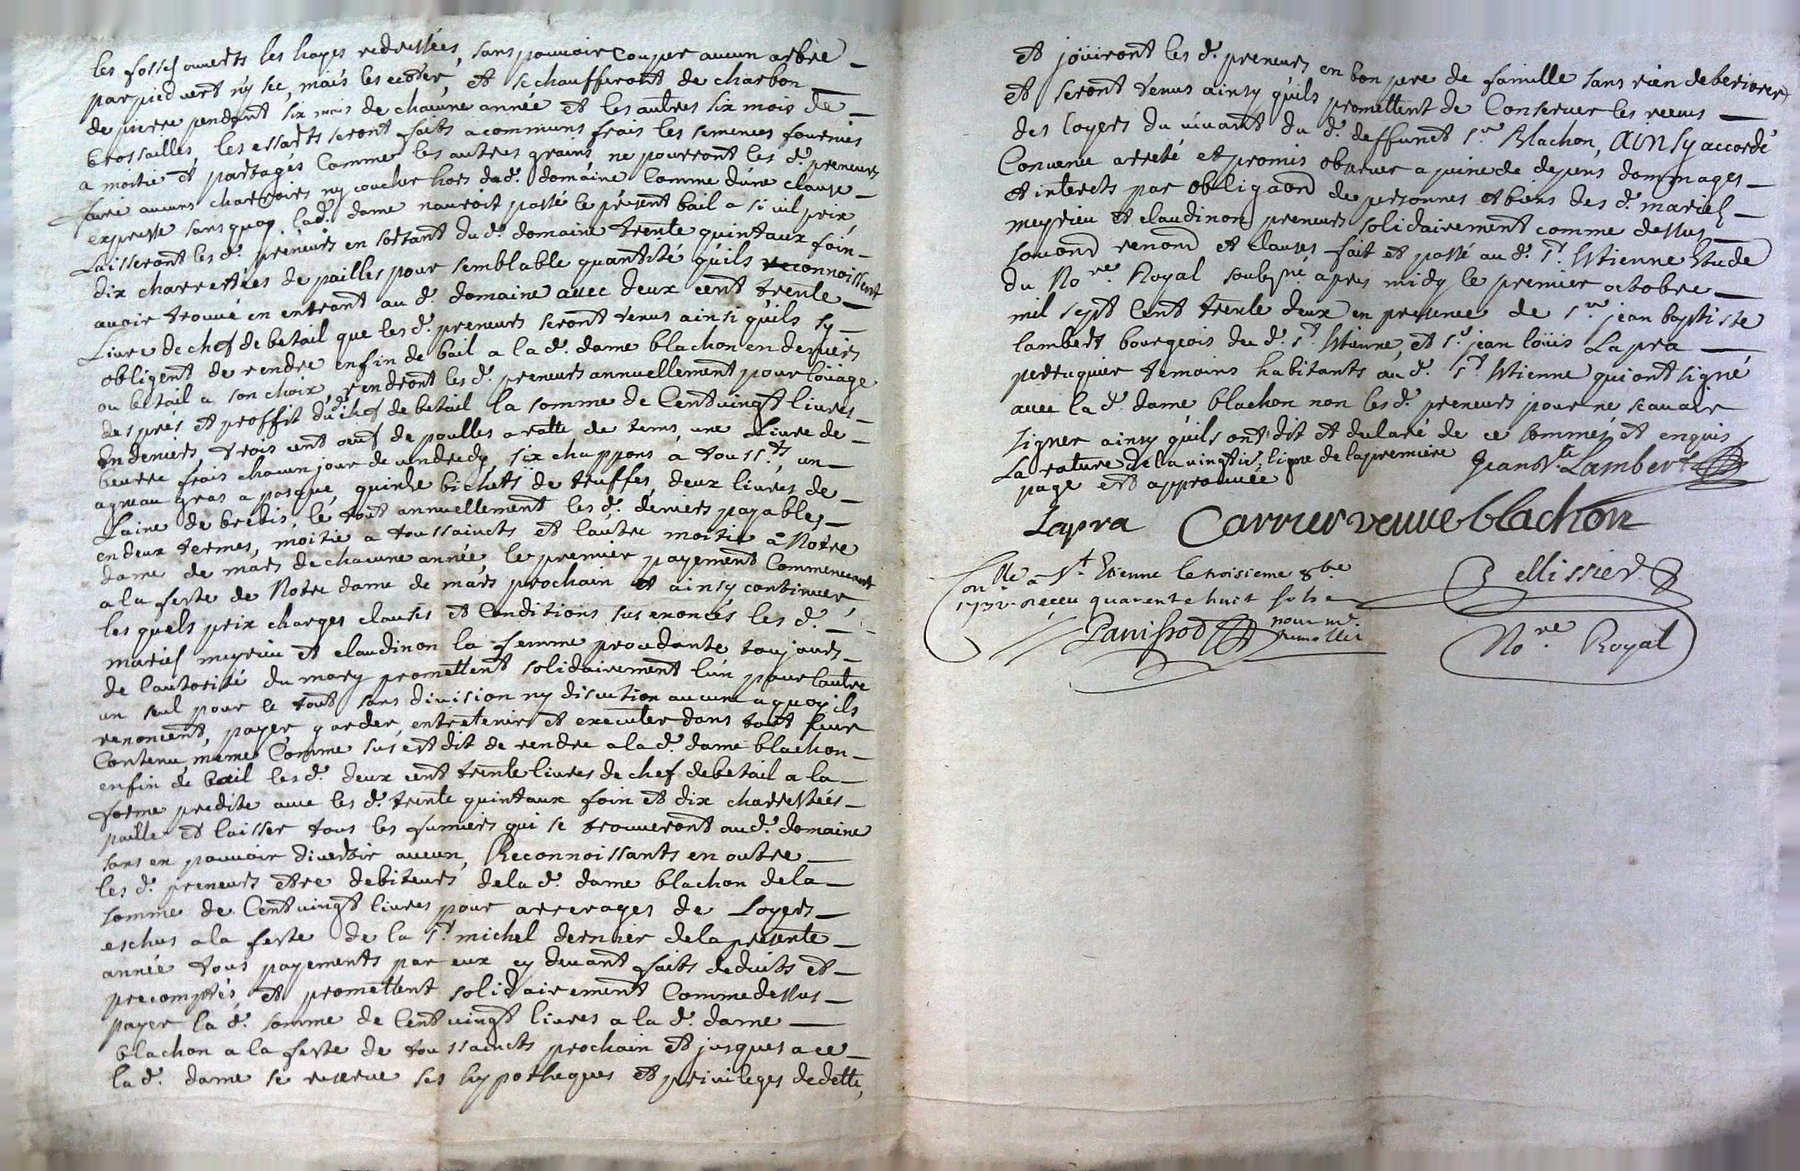 les fossés ouverts les hayes redressées, sans pouvoir couper aucun arbre
par pied vert ny sec, mais les ecôter, et se chaufferont de charbon
de pierre pendant six mois de chacune année et les autres six mois de
brossailles, les essarts seront faits a communs frais les semences fournies
a moitié et partagés comme les autres grains ne pourront les d. preneurs
faire aucuns charrois ny coucher hors dud. domaine comme d'une clause
expresse sans quoy lad. dame n'auroit passé le présent bail a si vil prix
Laisseront les d. preneurs en sortant du d. domaine trente quintaux foin
dix charrettées de pailles pour semblable quantité qu'ils reconnoissent
avoir trouvé en entrant au d. domaine avec deux cent trente
Livre de chef de betail que les d. preneurs seront tenus ainsi qu'ils sy
obligent de rendre enfin de bail a la d. dame blachon en deniers
ou betail a son choix, rendront les d. preneurs annuellement pour loüage
des prés et proffit du d. chef de betail la somme de Cent vingt livres
en deniers, trois cent oeufs de poulles a ratte de tems, une Livre de
beurre frais chacun jour de vendredy, six chappons a touss.ts, un
agneau gras a pasque, quinze bichets de truffes, deux livres de
Laine de brebis, le tout annuellement les d. deniers payables
en deux termes, moitié a toussaincts et l'autre moitié a Notre
dame de mars de chacune année, le premier payement Commencant
a la feste de Notre dame de mars prochain et ainsy continuer,
les quels prix charges clauses et Conditions sus enoncés les d.
mariés meyrieu et claudinon la femme procedante toujours
de l'autorité du mary promettent solidairement l'un pour l'autre
un seul pour le tout sans division ny discution aucune a quoy ils
renoncent, payer, garder, entretenir et executer dans tout leur
Contenu, meme Comme sus est dit de rendre a la d. dame blachon
enfin de bail les d. deux cent trente livres de chef de betail a la
forme predite avec les d. trente quintaux foin et dix charrettées
paille et laisser tous les fumiers qui se trouveront au d. domaine
sans en pouvoir divertir aucun, Reconnoissants en outre
les d. preneurs etre debiteurs de la d. dame blachon de la
somme de Cent vingt livres pour arrerages de Loyers
eschus a la feste de la St michel dernier de la presente
année tous payements par eux cy devant faits deduits et
precomptés, et promettent solidairement Comme dessus
payer la d. somme de Cent vingt livres a la d. dame
blachon a la feste de toussaincts prochain et jusques a ce
la d. dame se reserve ses hypotheques et privileges de dette,
et joüiront les d. preneurs en bon pere de famille sans rien deteriorer
et seront tenus ainsy qu'ils promettent de Conserver les receus
des loyers du vivant du d. deffunct sr Blachon, AINSy accordé
Convenu arreté et promis observer a peine de depens dommages
et interets par obligaon de personnes et biens des d. mariés
meyrieu et claudinon preneurs solidairement comme dessus
soumon renon et clauses fait et passé au d. St Etienne Etude
du Nore Royal soubsné apres midy le premier octobre
mil sept Cent trente deux en presence de sr jean baptiste
lambert bourgeois du d. St Etienne, et sr jean loüis Lapra
perruquier temoins habitants au d. St Etienne qui ont signé
avec la d. dame blachon non les d. preneurs pour ne scavoir
signer ainsy qu'ils ont dit et declaré de ce sommés et enquis
La rature de la vingtie. ligne de la premiere
page est approuvée
Jean Bte Lambert
Lapra Carrier veuve blachon
Conllé a St Etienne le troisieme 8bre
1732. Receu quarente huit sols
pour mr
Pellissier
Nore Royal